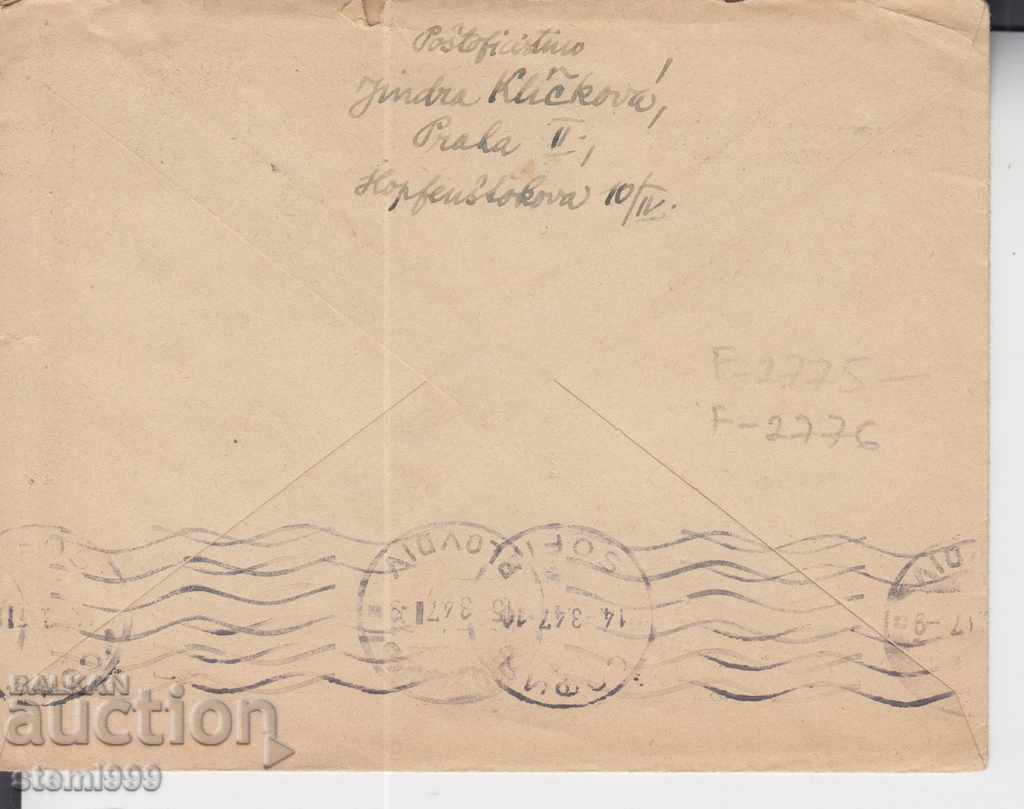 Poštoficistino
Jindra Klíčková,
Praha II.,
Hopfenštokova 10/IV.
F-2775-
F-2776
PLOVDIV
SOFIA
14-3.47.10
СОФИЯ
BALKAN
auction
stemi999